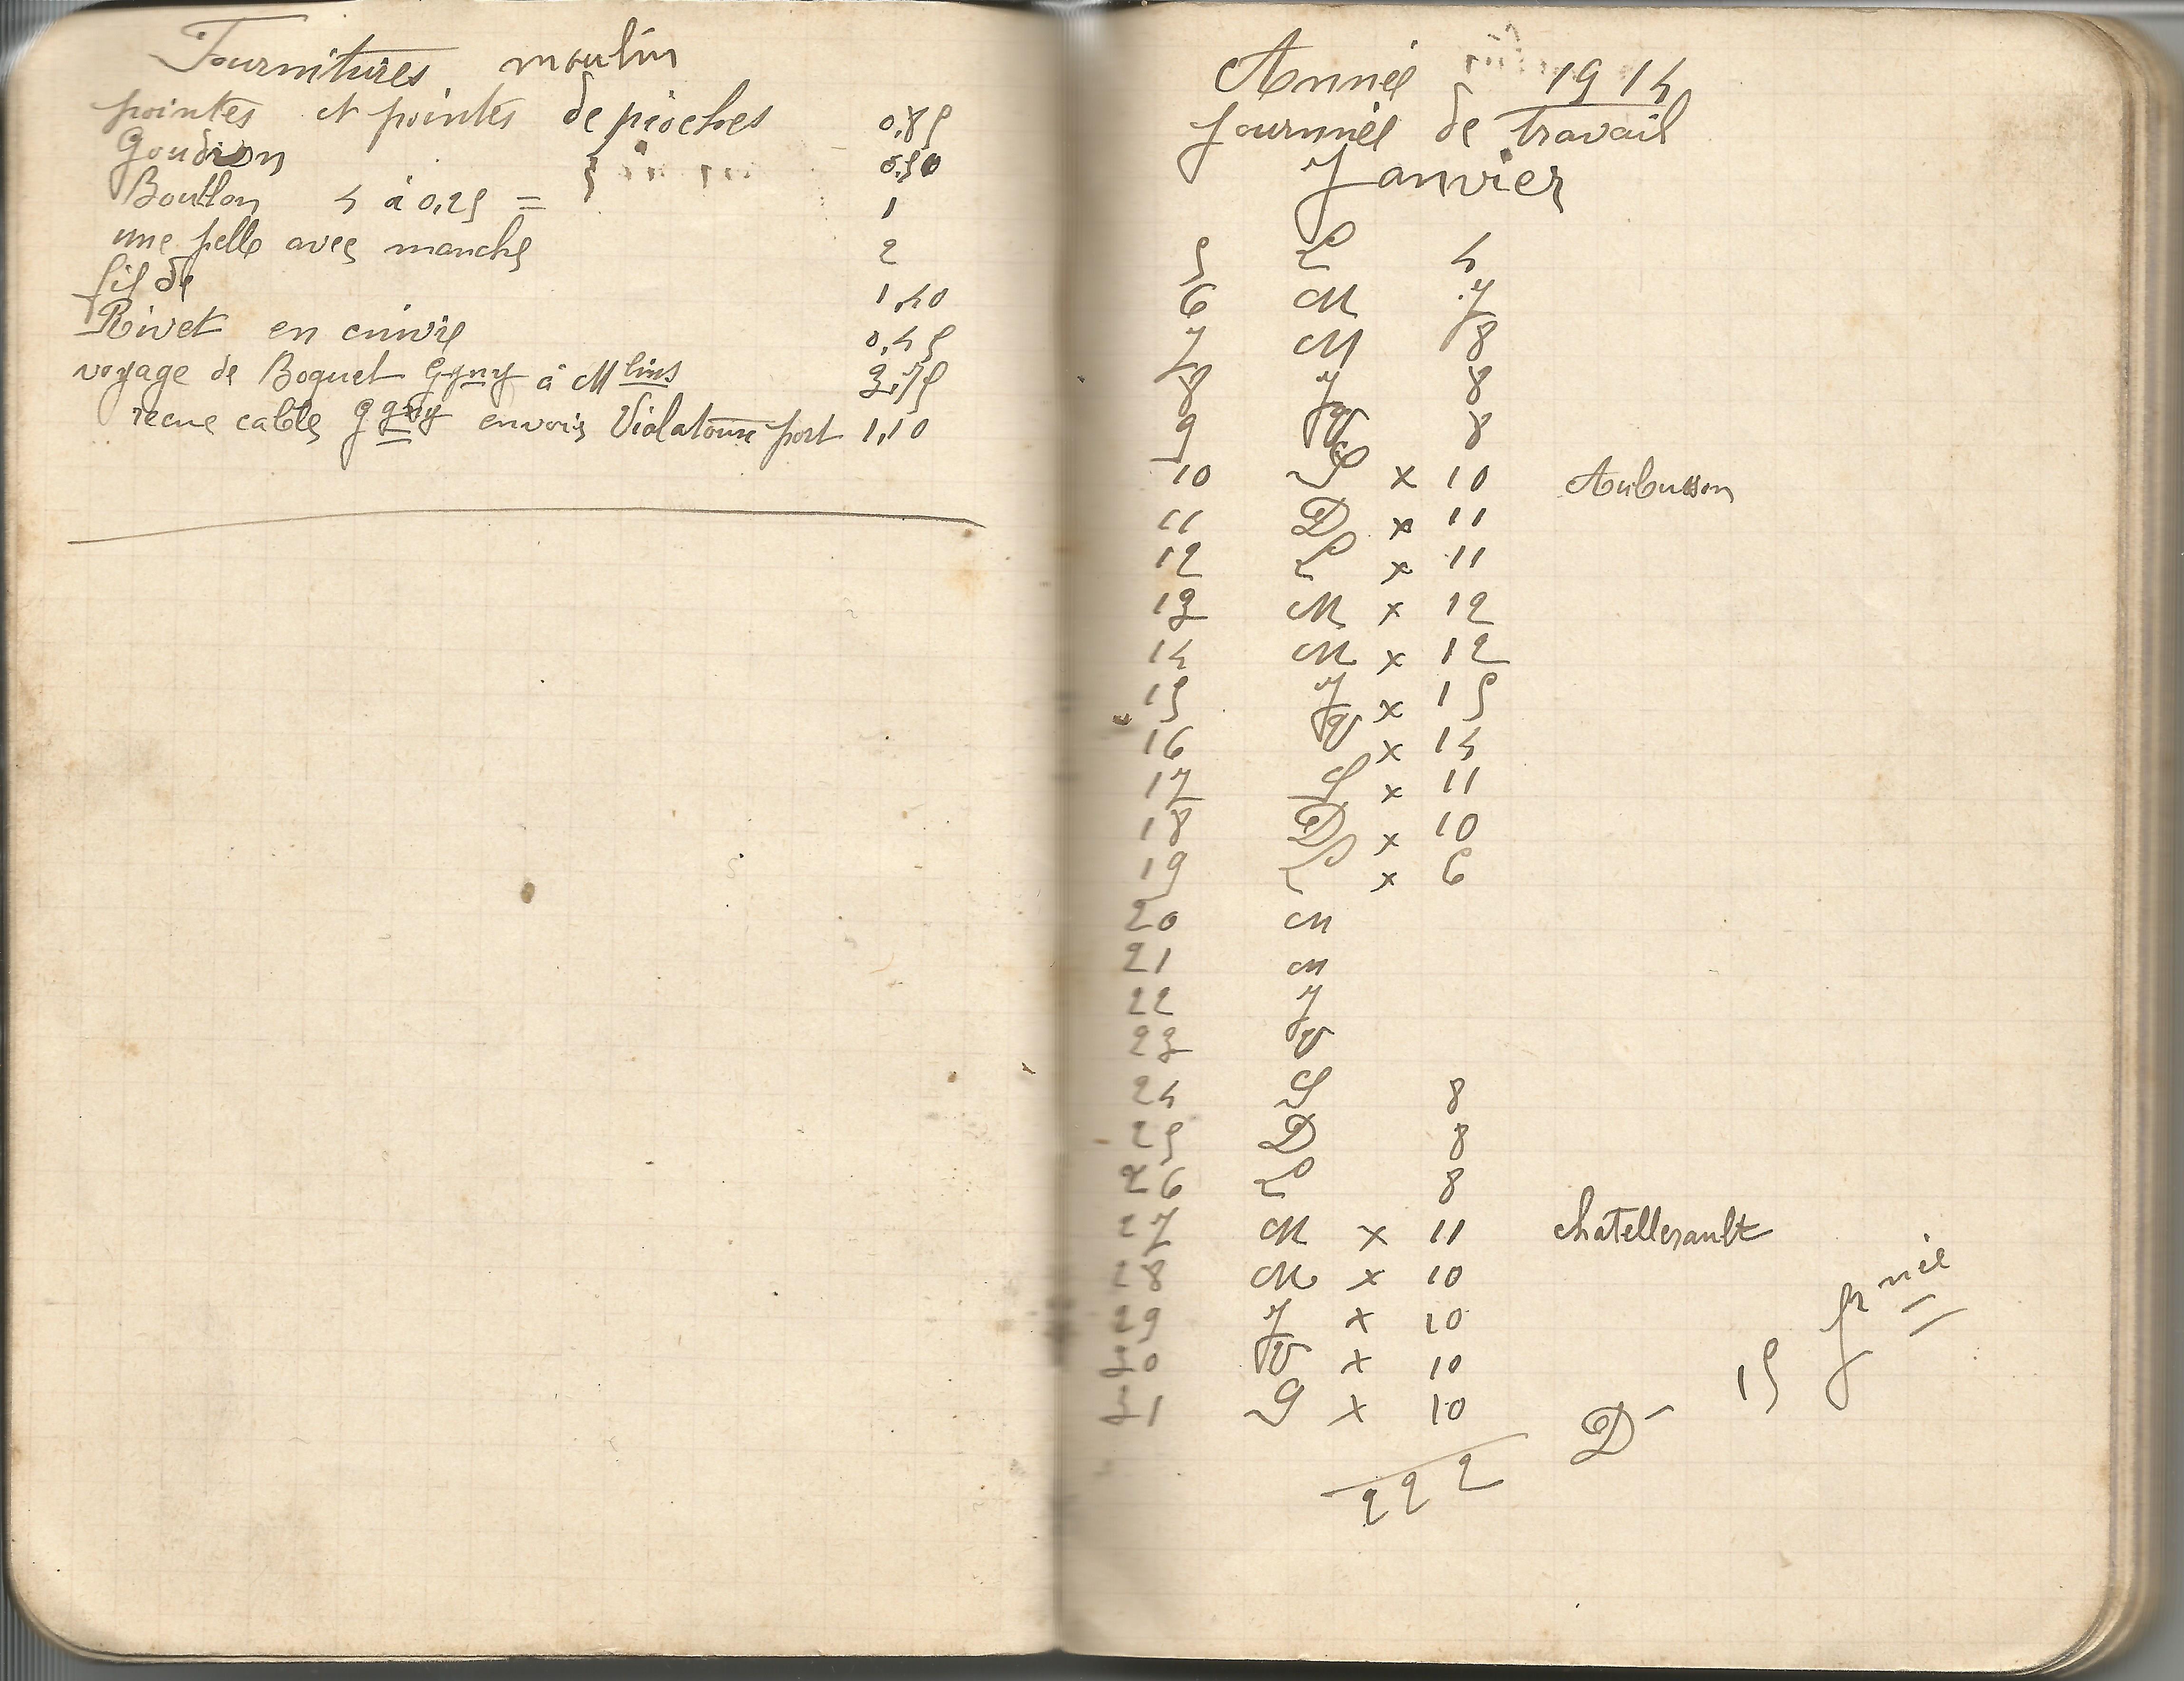 Fournitures moulin
pointes et pointes de pioches 0,85
Goudron 0,50
Boullon 4 à 0,25 = 1
une pelle avec manche 2
fil de 1,40
Rivet en cuivre 0,45
voyage de Boquet Ggny à Mlins 3,75
recue cables Ggny envois Violatonne port 1,10
Année 1914
Journneé de Travail
Janvier
5 L 4
6 M 7
7 M 8
8 J 8
9 V 8
10 S x 10 Aubusson
11 D x 11
12 L x 11
13 M x 12
14 M x 12
15 J x 15
16 V x 14
17 S x 11
18 D x 10
19 L x 6
20 M
21 M
22 J
23 V
24 S 8
25 D 8
26 L 8
27 M x 11 chatellerault
28 M x 10
29 J x 10
30 V x 10
31 S x 10
222 D - 15 Jrneé